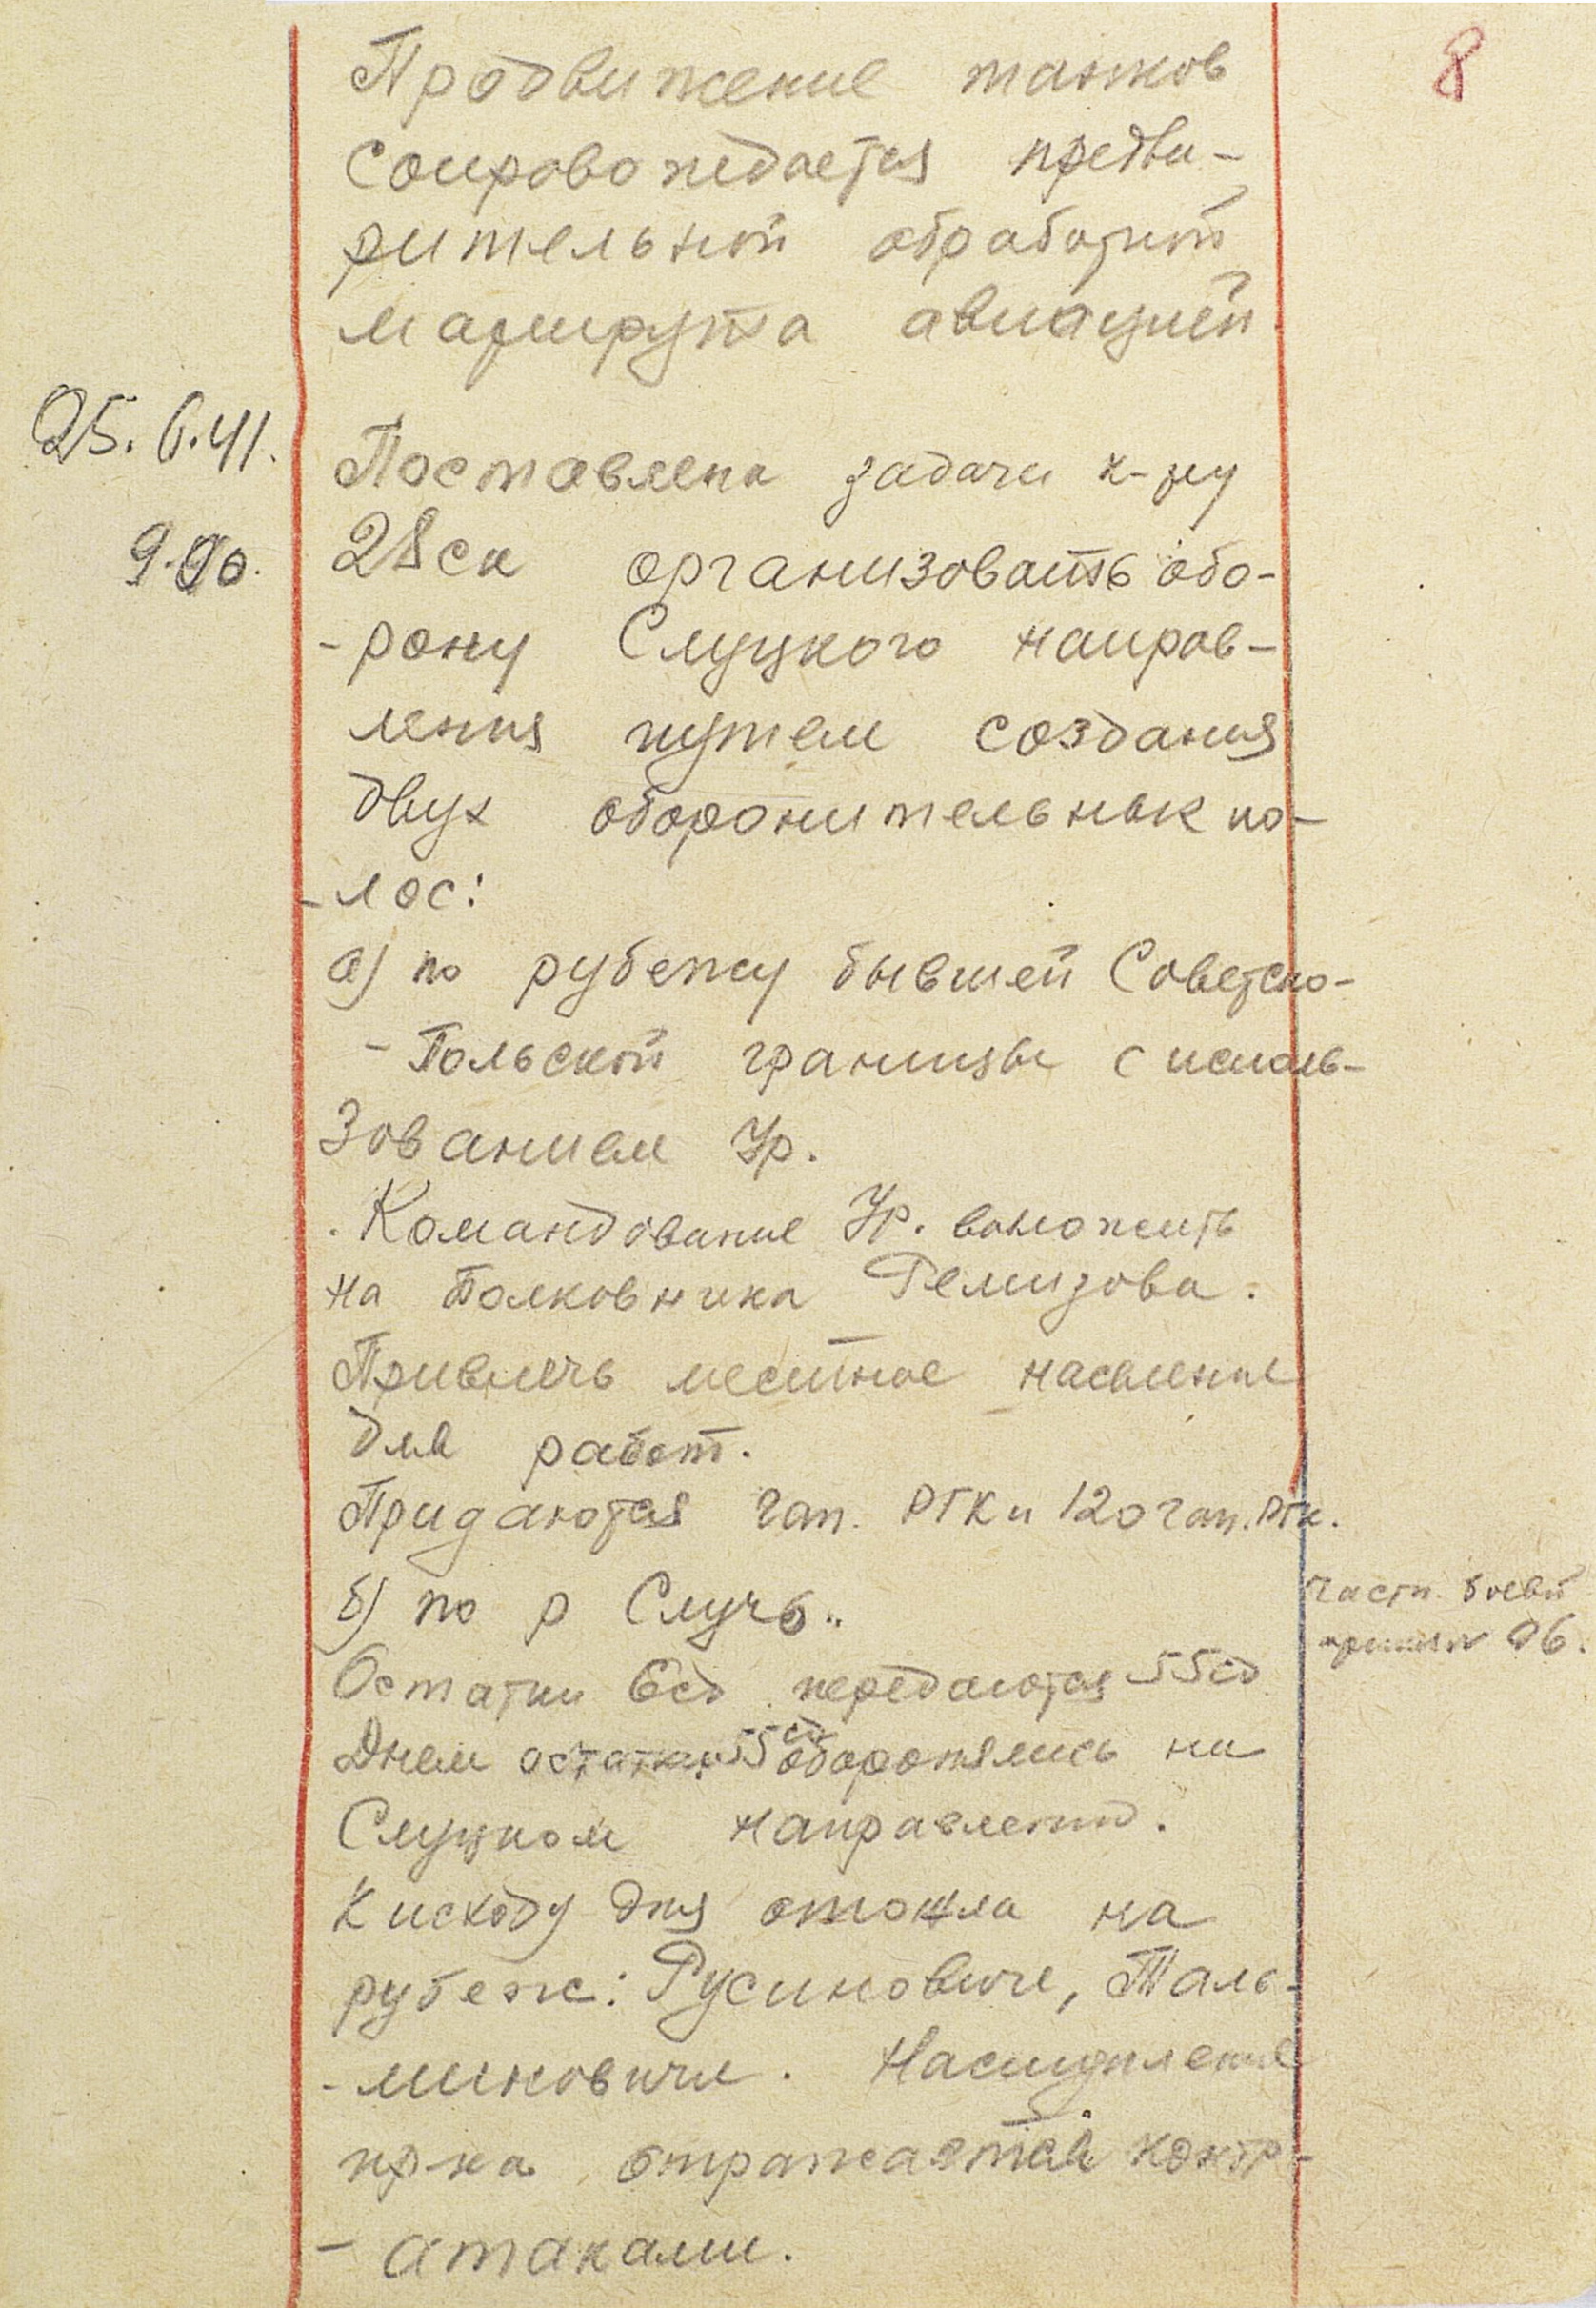 8
Продвижение танков
сопровождается предва-
рительной обработкой
маршрута авиацией
25.6.41.
Поставлена задача к-ру
9.00.
28 ск организовать обо-
-рону Слуцкого направ-
ления путем создания
двух оборонительных по-
-лос:
а) по рубежу бывшей Советско-
-Польской границы с исполь-
зованием Ур.
Командование Ур. возложить
на Полковника Ремизова.
Привлечь местное население
для работ.
Придаются гап. РГК и 120 гап. РГК.
б) по р Случь..
Частн. боевой
приказ № 06.
Остатки 6сд передаются 55сд
Днем остатки 55 сд оборонялись на
Слуцком направлении.
К исходу дня отошла на
рубеж: Русиновичи, Таль-
-миновичи. Наступление
пр-ка отражается контр-
-атаками.